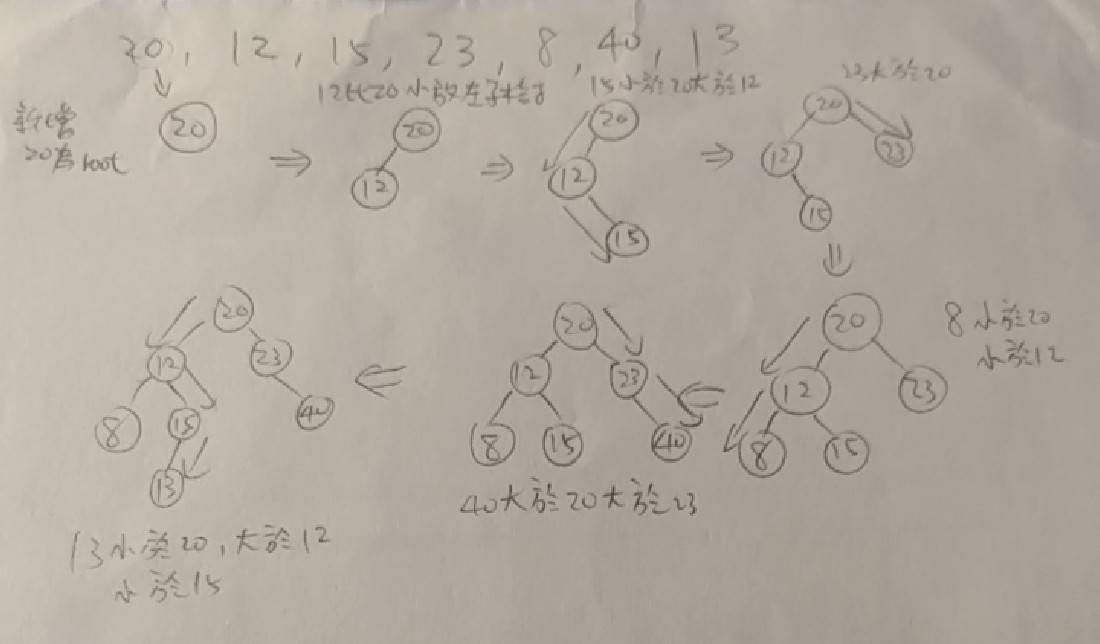 20, 12, 15, 23, 8, 40, 13
新增
20為root
20
12比20小放左子樹
20
12
15小於20大於12
20
12
15
23大於20
20
12
23
15
8小於20
小於12
20
12
23
8
15
20
12
23
8
15
40
40大於20大於23
20
12
23
8
15
40
13
13小於20,大於12
小於15